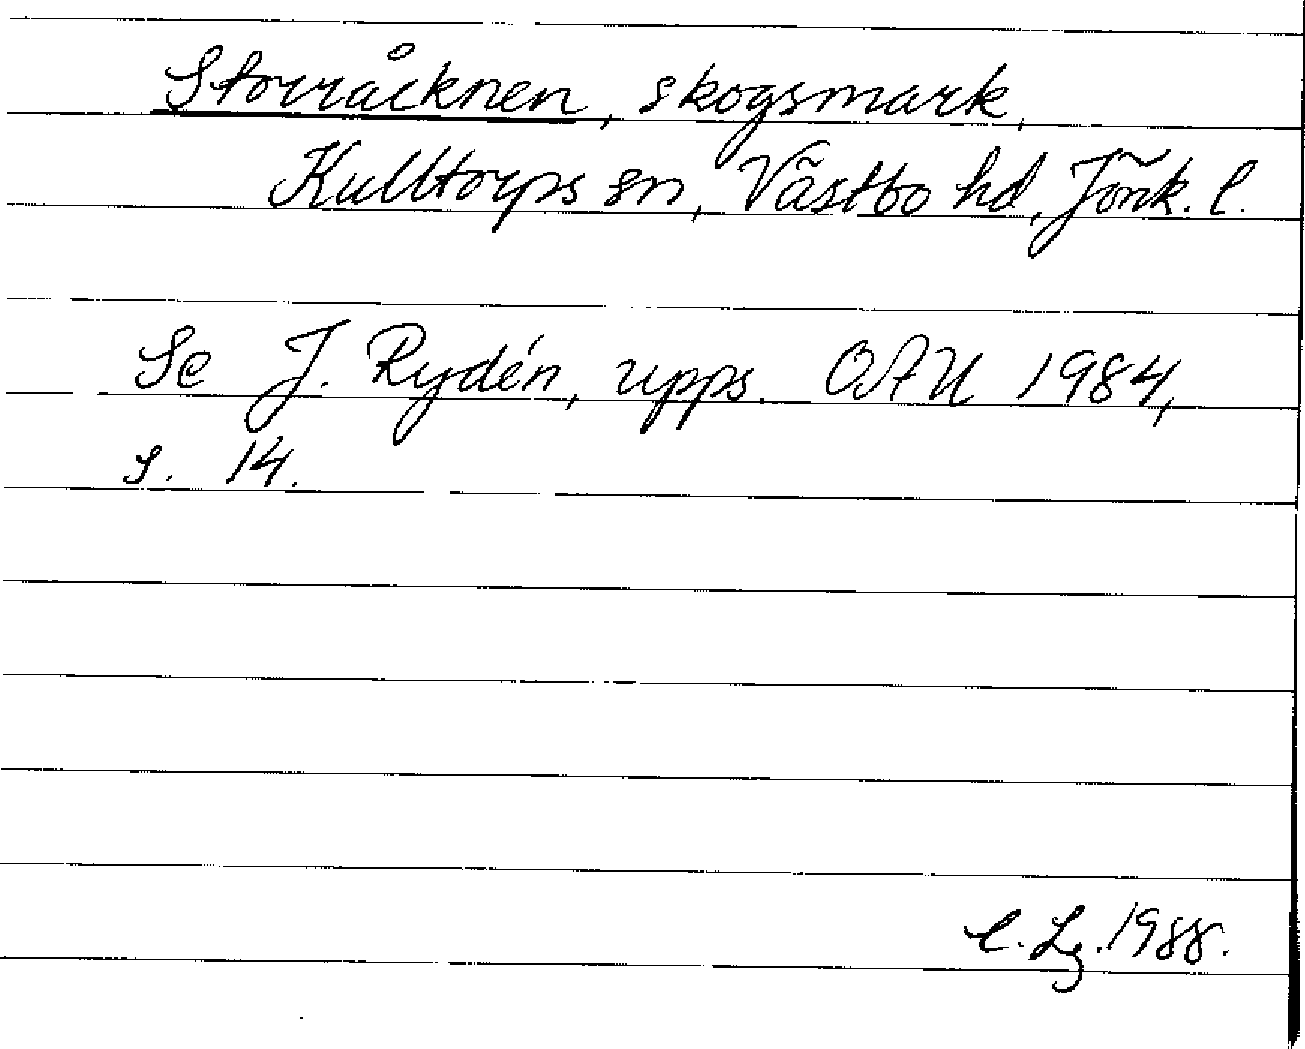 Storråcknen, skogsmark,
Kulltorps sn, Västbo hd, Jönk. l.
Se J. Rydén, upps. OAU 1984,
s. 14.
C. Lg. 1988.